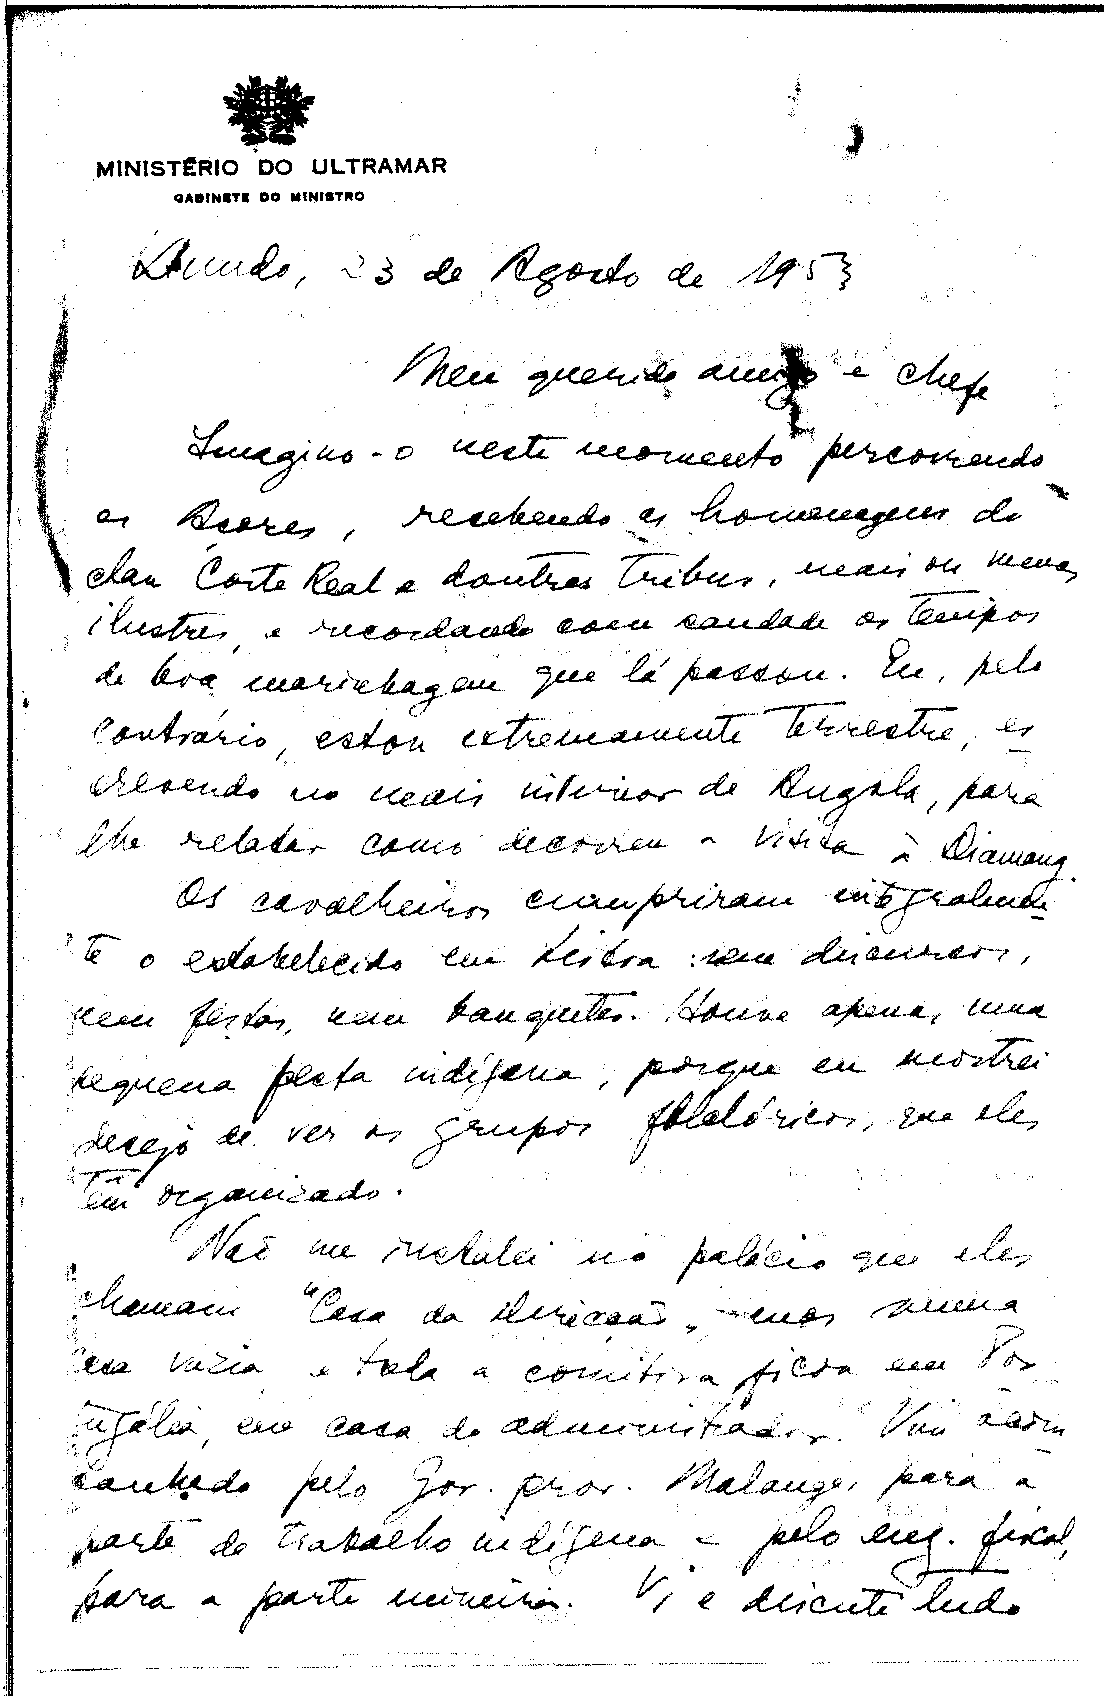 MINISTÉRIO DO ULTRAMAR
GABINETE DO MINISTRO
Dundo, 23 de Agosto de 1953
Meu querido amigo e chefe
Imagino-o neste momento percorrendo
os Açores, recebendo as homenagens do
clan Corte Real e doutras tribus, mais ou menos
ilustres, e recordando com saudade os tempos
de boa marinhagem que lá passou. Eu, pelo
contrário, estou extremamente terrestre, es
crevendo no mais interior de Angola, para
lhe relatar como decorreu a visita à Diamang.
Os cavalheiros cumpriram integralmen
te o estabelecido em Lisboa: sem discursos,
nem festas, nem banquetes. Houve apenas uma
pequena festa indígena, porque eu mostrei
desejo de ver os grupos folclóricos, que eles
têm organizado.
Não me instalei no palácio que eles
chamam "Casa da Direcção", mas numa
casa vazia e toda a comitiva ficou em Por
tugália, em casa do administrador. Vim acom
panhado pelo Gov. prov. Malange, para a
parte do trabalho indígena e pelo eng. fiscal,
para a parte mineira. Vi e discuti tudo